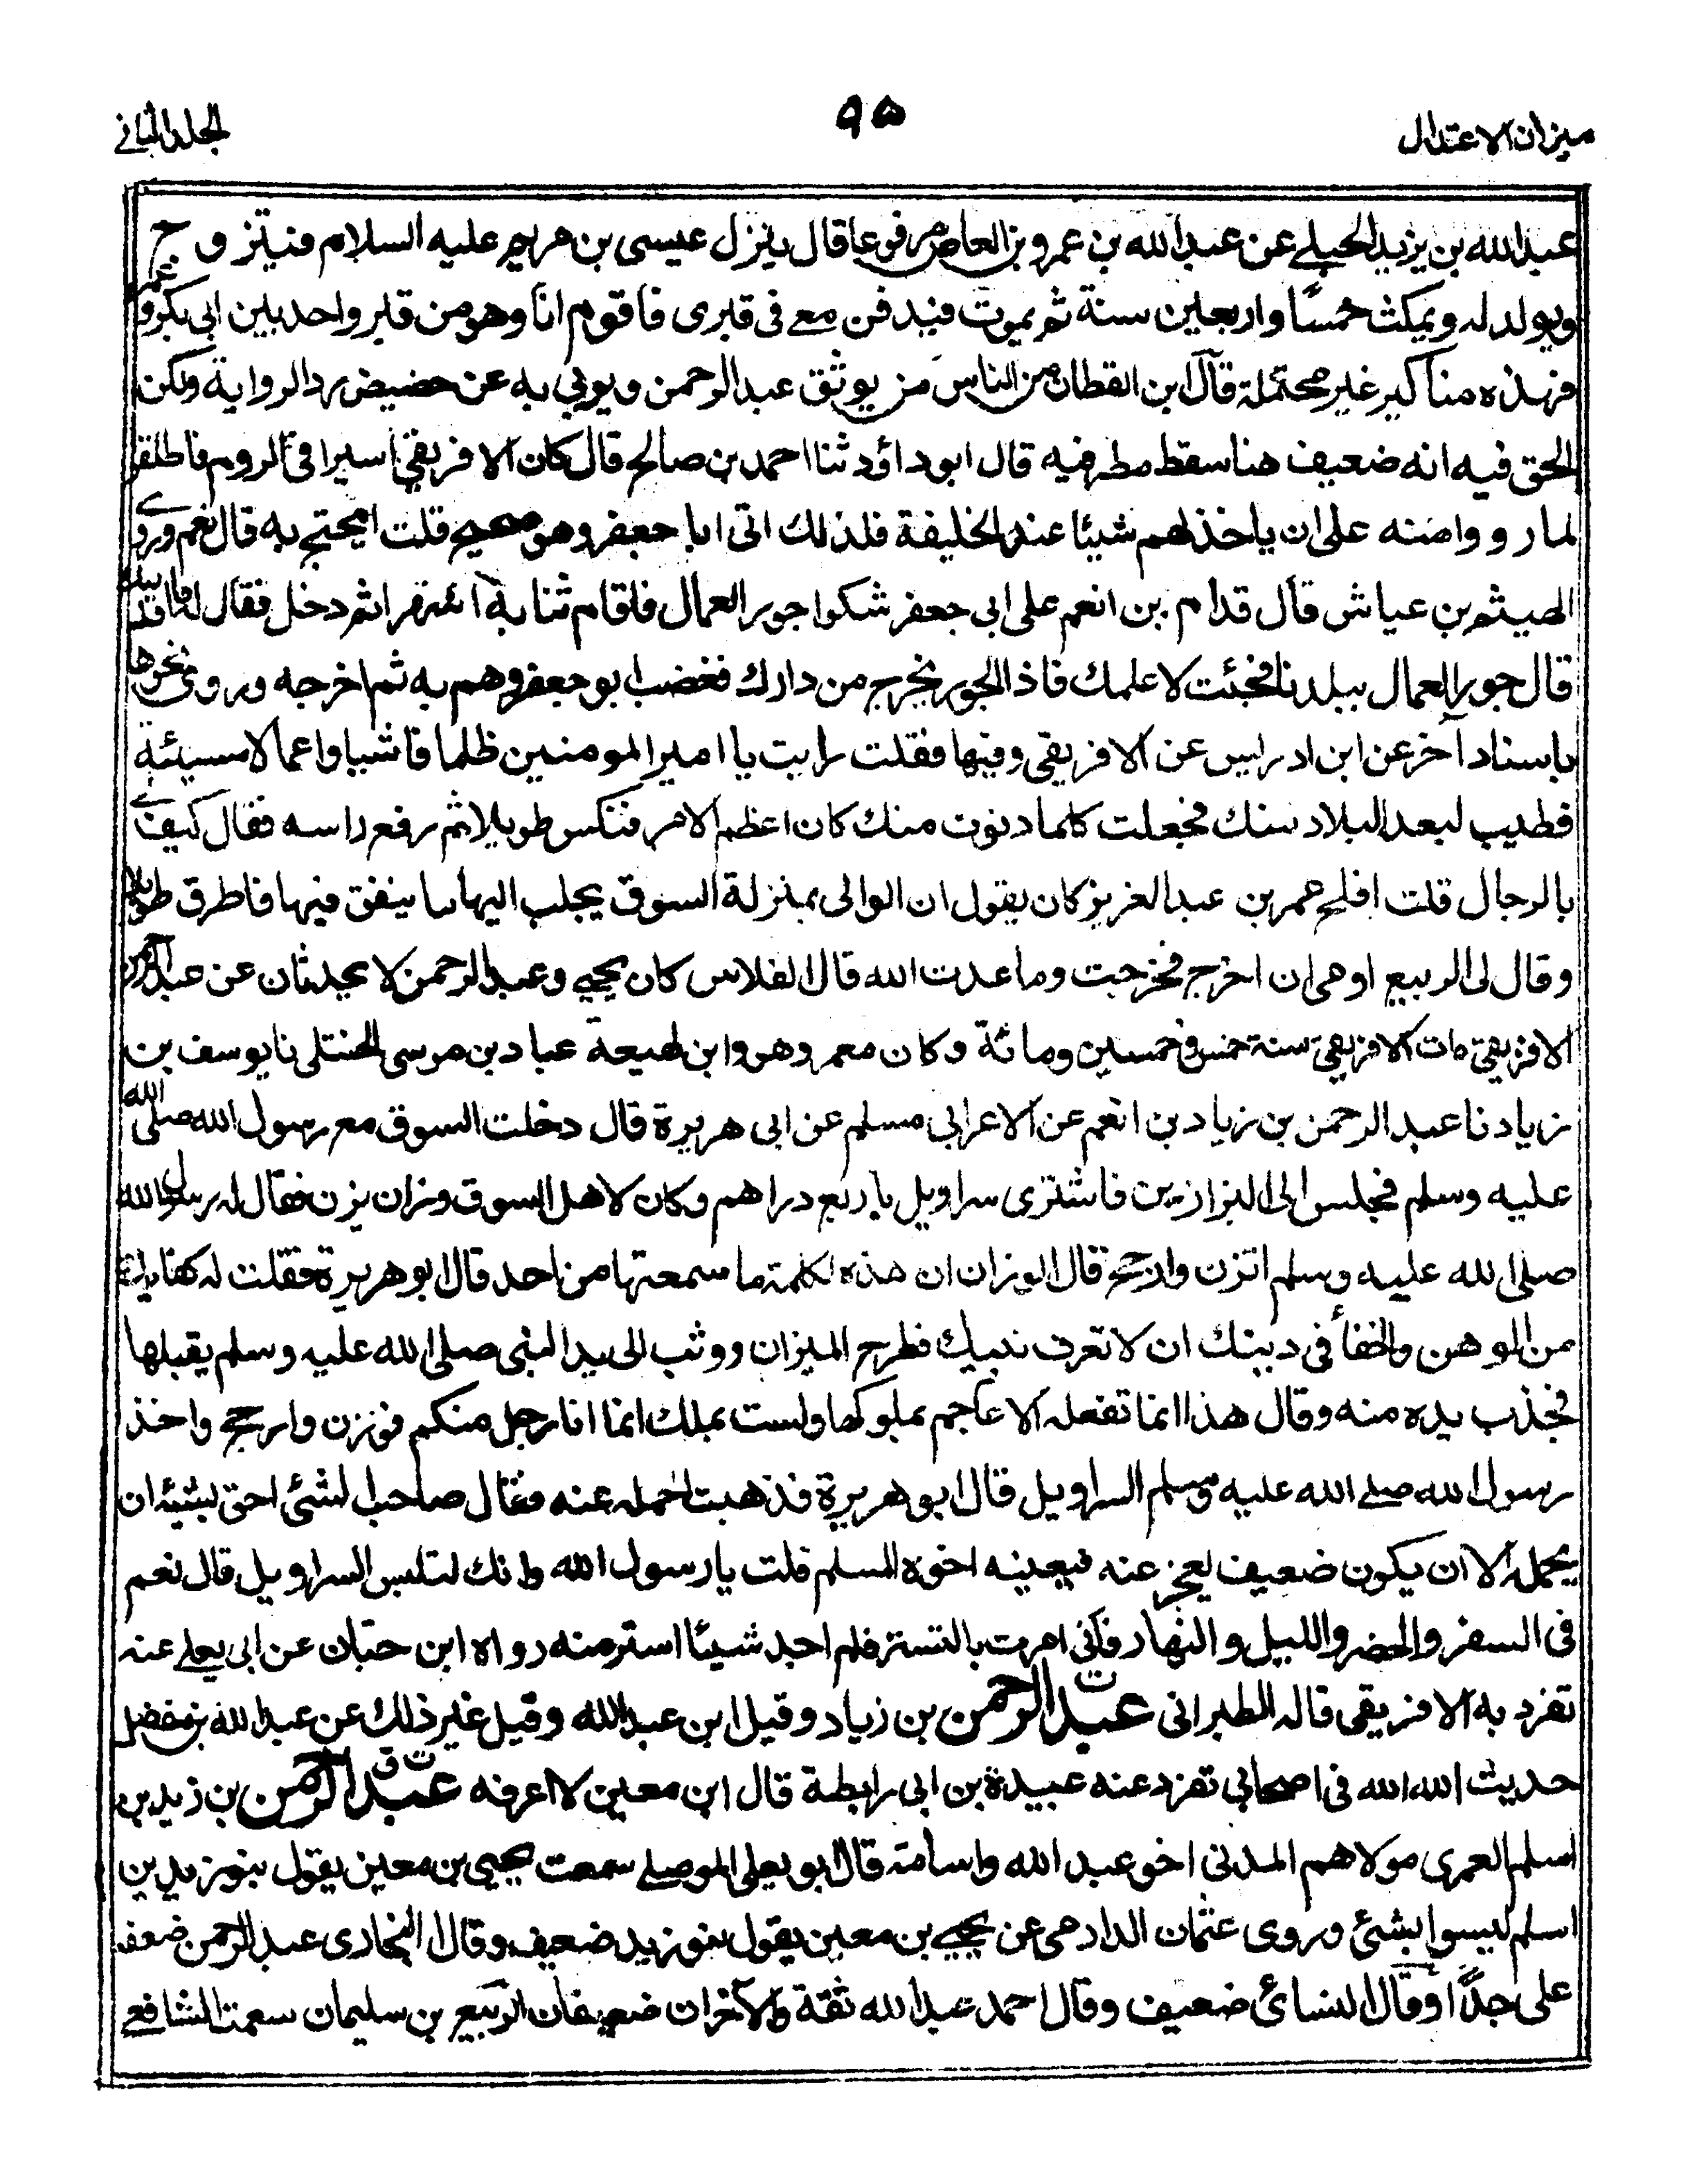 ميزان الاعتدال
٩٥
الجلد الثاني
عبد الله بن يزيد الحبلے عن عبد الله بن عمرو بن العاص مرفوعا قال ينزل عيسى بن مريم عليه السلام فيتزوج
ويولد له ويمكث خمسًا واربعين سنة ثم يموت فيدفن معے فى قبرى فاقوم انا وهو من قبر واحد بين ابى بكر و عمر
فهذه مناكير غير محتملة قال ابن القطان من الناس من يوثق عبد الرحمن ويوبي به عن حضيض رد الرواية ولكن
الحق فيه انه ضعيف هنا سقط مطر فيه قال ابو داؤد ثنا احمد بن صالح قال كان الافريقي اسيرا فى الروم فاطلقو
لما رووا منه على ان ياخذ لهم شيئا عند الخليفة فلذلك اتى ابا جعفر وهو صحيح قلت ايحتج به قال نعم وروے
الهيثم بن عياش قال قدام بن انعم على ابى جعفر شكوا جور العمال فاقام ثنا به اشهرا ثم دخل فقال له ما اقدمك
قال جور العمال ببلدنا فجئت لاعلمك فاذا الجور يخرج من دارك فغضب ابو جعفر وهم به ثم اخرجه وروى نحوها
باسناد آخر عن ابن ادريس عن الافريقى وفيها فقلت رايت يا امير المومنين ظلما فاشيا واعمالا سيئة
فطيب لبعد البلاد سنك فجعلت كلما دنوت منك كان اعظم الامر فنكس طويلا ثم رفع راسه فقال كيف لے
بالرجال قلت افلح عمر بن عبد العزيز كان يقول ان الوالى بمنزلة السوق يجلب اليها ما ينفق فيها فاطرق طويلا
وقال لى الربيع اومى ان اخرج فخرجت وما عدت الله قال الفلاس كان يحيے وعبد الرحمن لا يحدثان عن عبد الرحمن
الافريقى مات الافريقى سنة خمس وخمسين ومائة وكان معمر وهو وابن لهيعة عباد بن موسى الختلى نا يوسف بن
زياد نا عبد الرحمن بن زياد بن انعم عن الاعرابي مسلم عن ابى هريرة قال دخلت السوق مع رسول الله صلى الله
عليه وسلم فجلس الى البزازين فاشترى سراويل باربع دراهم وكان لاهل السوق وزان يزن فقال له رسول الله
صلى الله عليه وسلم اتزن وارجح فقال الوزان ان هذه لكلمة ما سمعتها من احد قال ابو هريرة فقلت له كفا بك
من الوهن والخفأ فى دينك ان لا تعرف نبيك فطرح الميزان ووثب الى يد النبى صلى الله عليه وسلم يقبلها
فجذب يده منه وقال هذا انما تفعله الاعاجم بملوكها ولست بملك انما انا رجل منكم فوزن وارجح واخذ
رسول الله صلے الله عليه وسلم السراويل قال ابو هريرة فذهبت احمله عنه فقال صاحب الشئ احق بشيئه ان
يحمله الا ان يكون ضعيف يعجز عنه فيعينه اخوه المسلم قلت يا رسول الله وانك لتلبس السراويل قال نعم
فى السفر والحضر والليل والنهار فانى امرت بالتستر فلم اجد شيئا استر منه رواه ابن حبان عن ابى يعلے عنه
تفرد به الافريقى قاله الطبرانى ت عبد الرحمن بن زياد وقيل ابن عبد الله وقيل غير ذلك عن عبد الله بن مغفل
حديث الله الله فى اصحابي تفرد عنه عبيدة بن ابى رابطة قال ابن معين لا اعرفه ت ق عبد الرحمن بن زيد بن
اسلم العمرى مولاهم المدنى اخو عبد الله واسامة قال ابو يعلى الموصلے سمعت يحيى بن معين يقول بنو زيد بن
اسلم ليسوا بشئ وروى عثمان الدارمى عن يحيے بن معين يقول بنو زيد ضعيف وقال البخارى عبد الرحمن ضعفه
على جدًّا وقال النسائ ضعيف وقال احمد عبد الله ثقة والآخران ضعيفان الربيع بن سليمان سمعت الشافعے